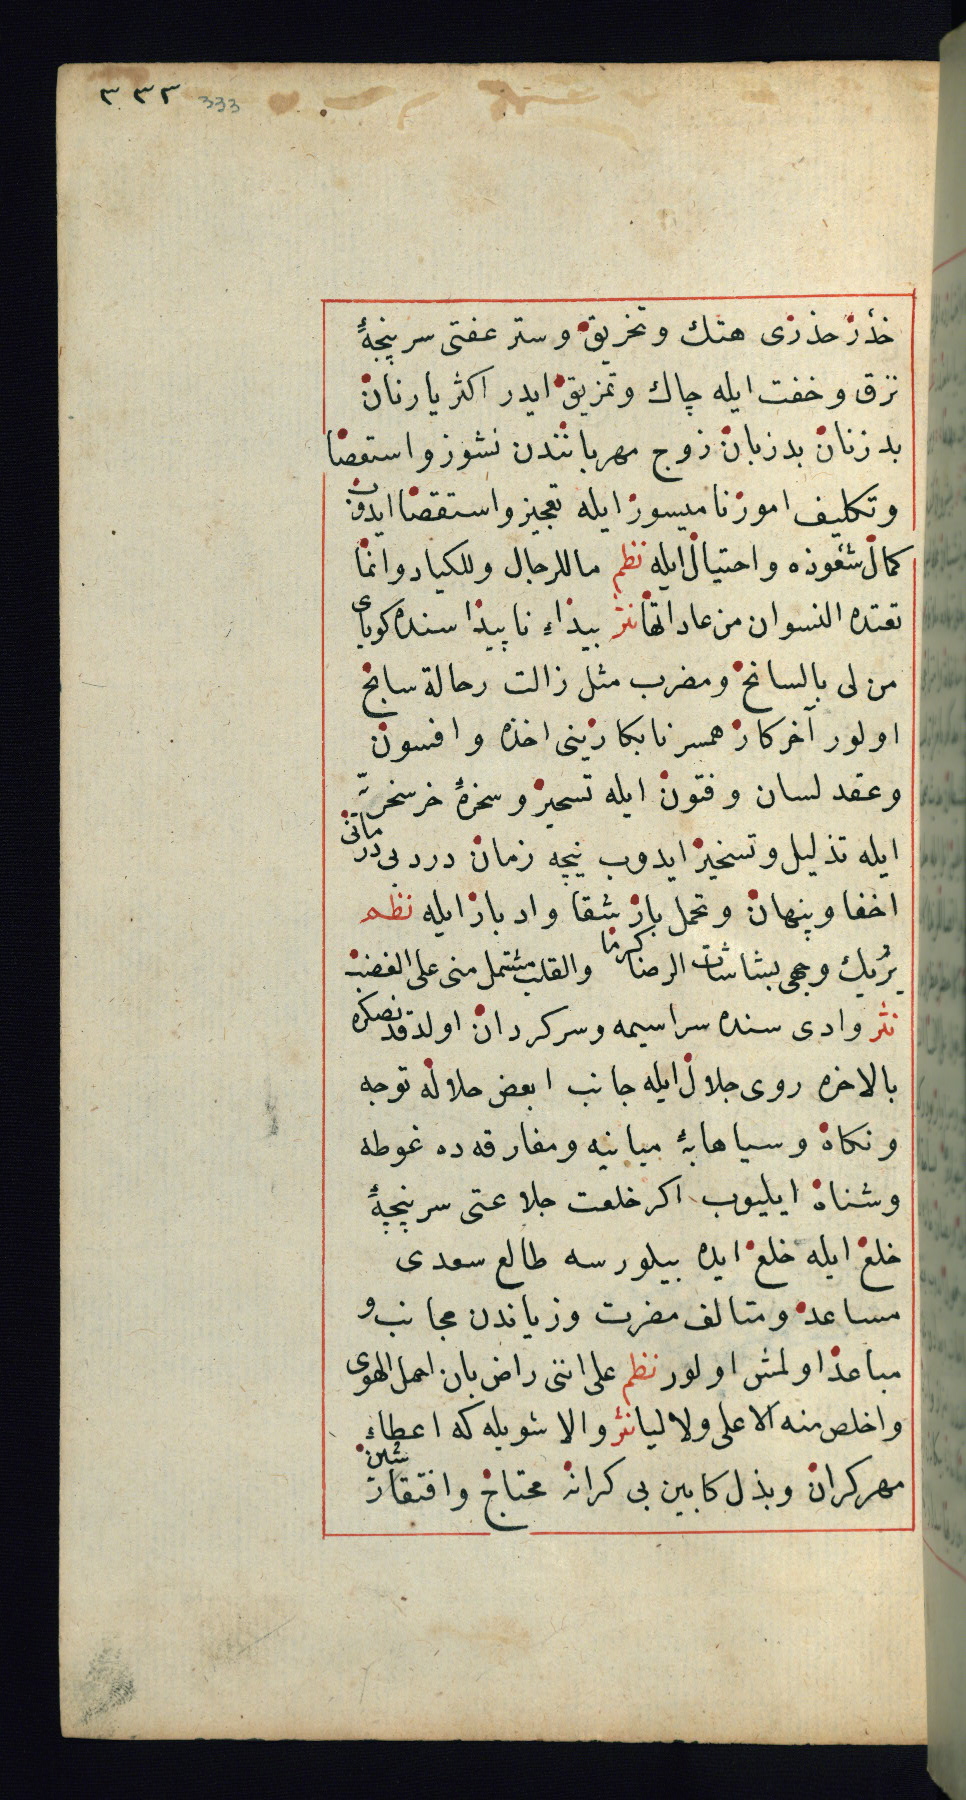 ٣٣٢ 333
خدر حذرى هتك وتخريق وستر عفتى سرپنجهٔ
نزق وخفت ايله چاك وتمزيق ايدر اكثر يارنان
بدزنان بدزبان زوج مهرباننندن نشوز واستعصا
وتكليف امور ناميسور ايله تعجيز واستقصا ايدوب
كمال شعوذه واحتيال ايله نظم ما للرجال وللكياد وانما
تعتده النسوان من عاداتها نثر بيداء ناپيدا سنده كوياى
من لى بالسانح ومضرب مثل زالت رحالة سابح
اولور آخر كار همسر نابكارينى اخذه وافسون
وعقد لسان وفتون ايله تسحير وسخرهٔ خرسخريّه
ايله تذليل وتسخير ايدوب نيچه زمان درد بى درمانى
اخفا وپنهان وتحمل بار شقا وادبار ايله نظم
يُريك وجهى بشاشات الرضا كرما والقلب مشتمل منى على الغضب
نثر وادى سنده سراسيمه وسركردان اولدقدنصكره
بالاخره روى جلال ايله جانب ابغض حلاله توجه
ونكاه وسياهابهٔ ميانيه ومفارقه ده غوطه
وشناه ايليوب اكر خلعت جلاعتى سرپنچهٔ
خلع ايله خلع ايده بيلورسه طالع سعدى
مساعد ومتالف مضرت وزياندن مجانب و
مباعد اولمش اولور نظم على اننى راض بان احمل الهوى
واخلص منه لا على ولا ليا نثر والا شويله كه اعطاء
مهر كران وبذل كابين بى كرانه محتاج وافتقار شين